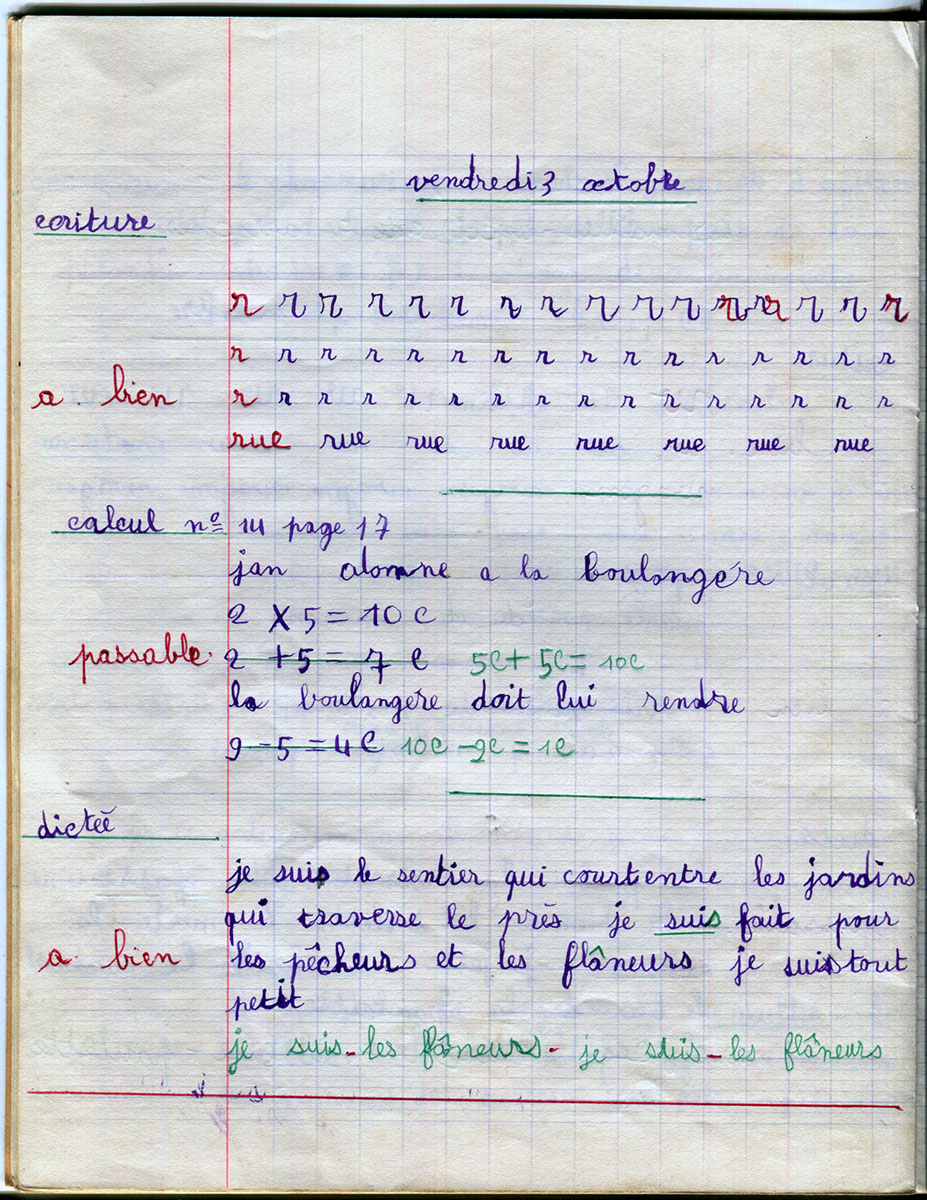 vendredi 3 octobre
ecriture
r r r r r r r r r r r r r r r r
r r r r r r r r r r r r r r r r
a bien r r r r r r r r r r r r r r r r
rue rue rue rue rue rue rue rue
calcul nº 14 page 17
jan donne a la boulangère
2 X 5 = 10 c
passable 2 + 5 = 7 c 5c + 5c = 10c
la boulangère doit lui rendre
9 - 5 = 4 c 10c - 9c = 1c
dicteé
je suis le sentier qui court entre les jardins
qui traverse le près je suis fait pour
a bien les pêcheurs et les flâneurs je suis tout
petit
je suis - les flâneurs - je suis - les flâneurs